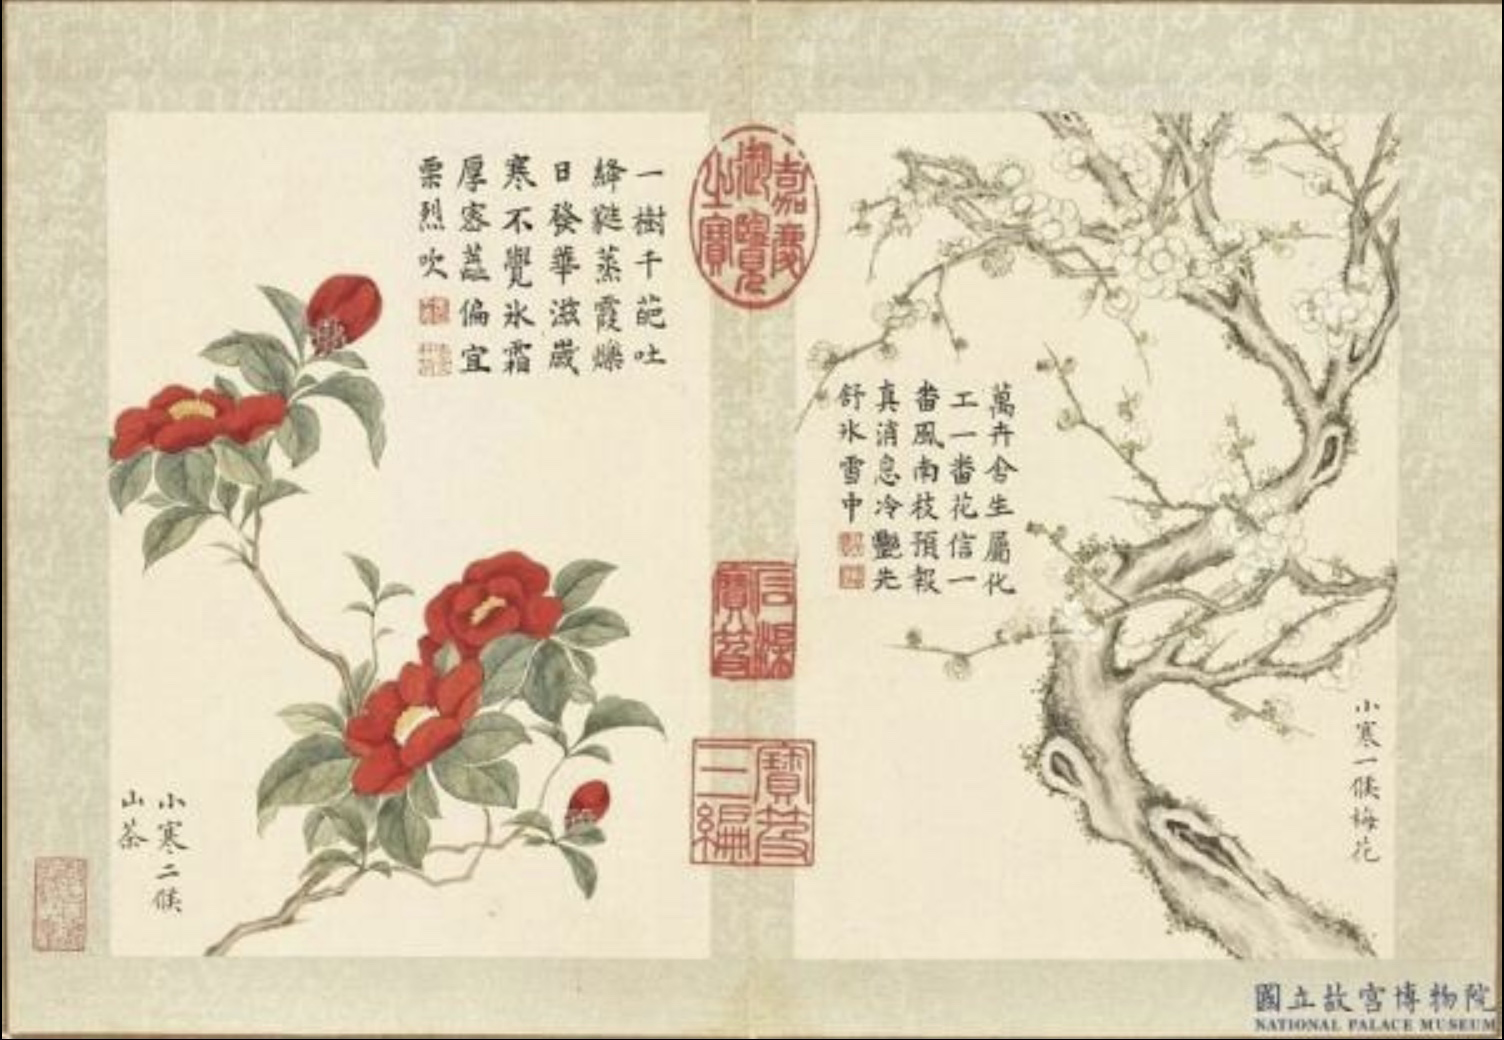 萬卉含生屬化
工一番花信一
番風南枝預報
真消息冷豔先
舒氷雪中
小寒一候梅花
嘉慶
御覽
之寶
石渠
寶笈
寶笈
三編
一樹千葩吐
絳豔蒸霞爍
日發華滋歲
寒不覺氷霜
厚密蕋偏宜
栗烈吹
小寒二候
山茶
國立故宮博物院
NATIONAL PALACE MUSEUM